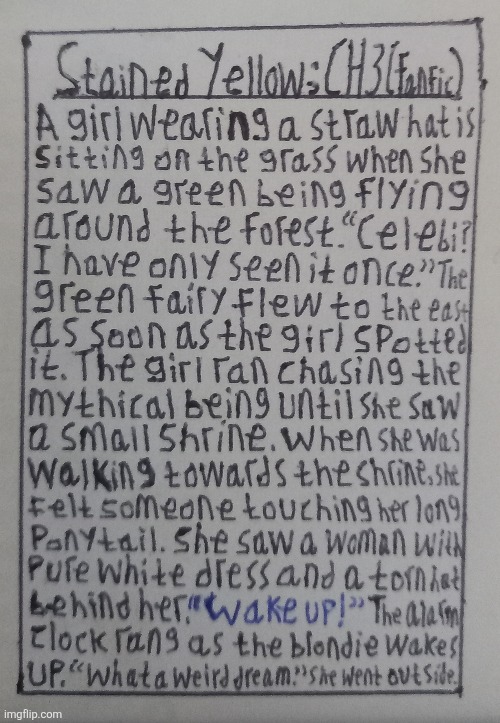 Stained Yellow: CH3(Fanfic)
A girl wearing a straw hat is
sitting on the grass when she
saw a green being flying
around the forest. "Celebi?
I have only seen it once." The
green fairy flew to the east
as soon as the girl spotted
it. The girl ran chasing the
mythical being until she saw
a small shrine. When she was
walking towards the shrine, she
felt someone touching her long
Ponytail. She saw a woman with
Pure white dress and a torn hat
behind her. "Wake up!" The alarm
clock rang as the blondie wakes
up. "What a weird dream." She went outside.
imgflip.com